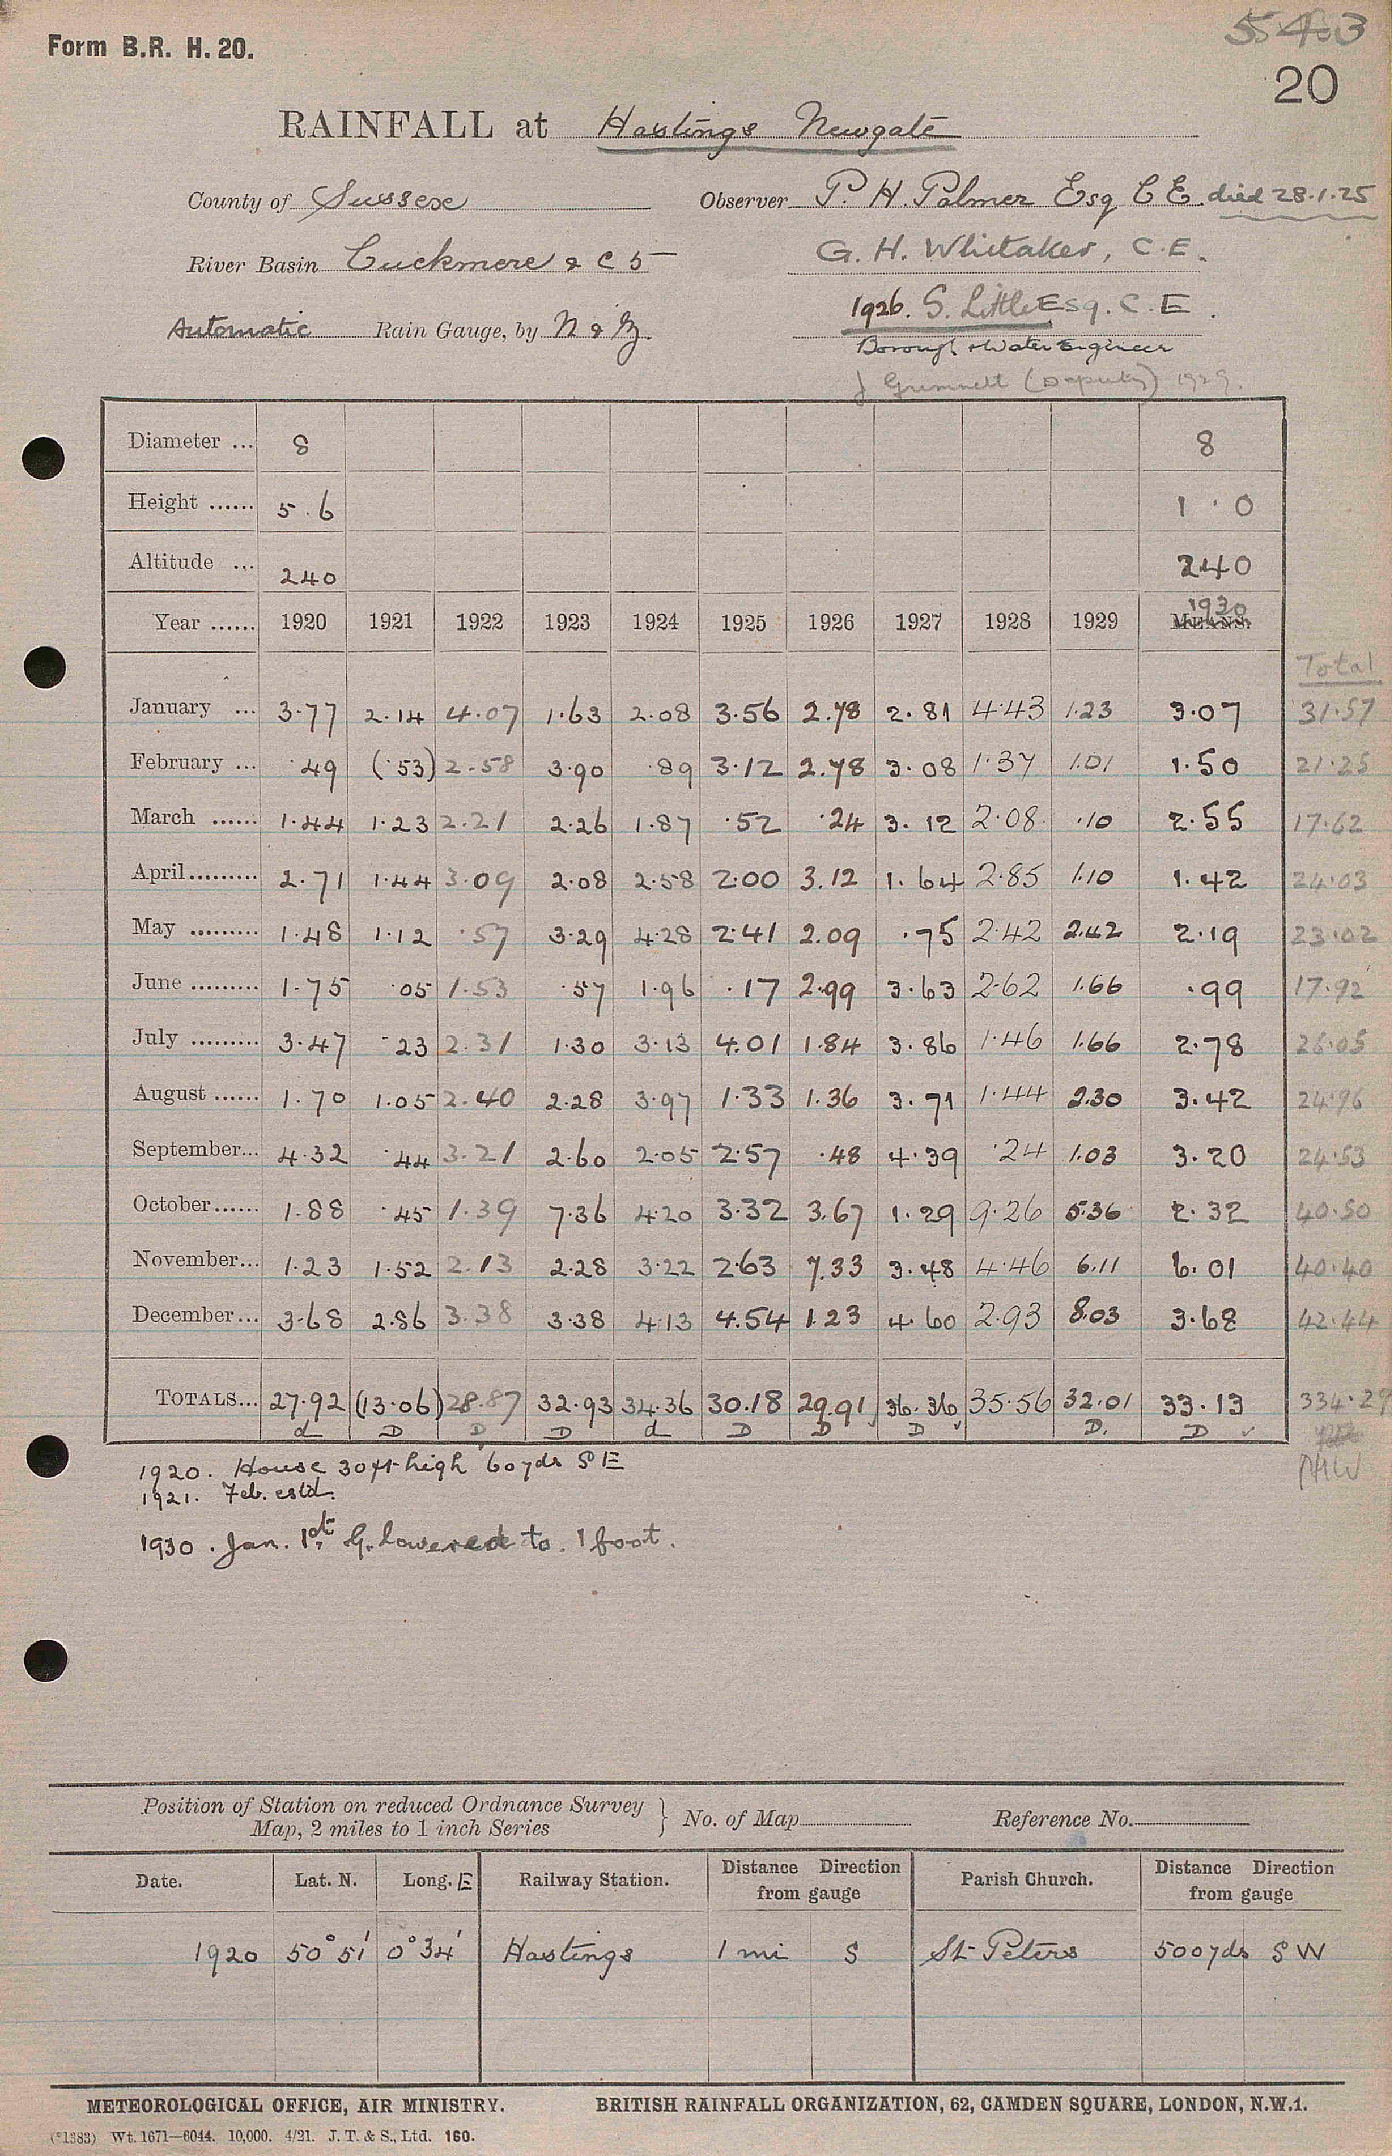 5403
Form B.R. H. 20.
20
RAINFALL at Hastings Newgate
County of Sussex Observer P. H. Palmer Esq C E. died 28.1.25
River Basin Cuckmere & C 5 G. H. Whitaker, C.E.
1926. S. Little Esq. C.E.
Automatic Rain Gauge, by N & Z
Borough & Water Engineer
J Grimnett (Deputy) 1929.
Diameter ... 8 8
Height ...... 5.6 1.0
Altitude ... 240 240
Year ...... 1920 1921 1922 1923 1924 1925 1926 1927 1928 1929 MEANS. 1930
Total
January ... 3.77 2.14 4.07 1.63 2.08 3.56 2.78 2.81 4.43 1.23 3.07 31.57
February ... .49 (.53) 2.58 3.90 .89 3.12 2.78 3.08 1.37 1.01 1.50 21.25
March ...... 1.44 1.23 2.21 2.26 1.87 .52 .24 3.12 2.08 .10 2.55 17.62
April ......... 2.71 1.44 3.09 2.08 2.58 2.00 3.12 1.64 2.85 1.10 1.42 24.03
May ......... 1.48 1.12 .57 3.29 4.28 2.41 2.09 .75 2.42 2.42 2.19 23.02
June ......... 1.75 .05 1.53 .57 1.96 .17 2.99 3.63 2.62 1.66 .99 17.92
July ......... 3.47 .23 2.31 1.30 3.13 4.01 1.84 3.86 1.46 1.66 2.78 26.05
August ...... 1.70 1.05 2.40 2.28 3.97 1.33 1.36 3.71 1.44 2.30 3.42 24.96
September... 4.32 .44 3.21 2.60 2.05 2.57 .48 4.39 .24 1.03 3.20 24.53
October...... 1.88 .45 1.39 7.36 4.20 3.32 3.67 1.29 9.26 5.36 2.32 40.50
November... 1.23 1.52 2.13 2.28 3.22 2.63 7.33 3.48 4.46 6.11 6.01 40.40
December... 3.68 2.86 3.38 3.38 4.13 4.54 1.23 4.60 2.93 8.03 3.68 42.44
TOTALS... 27.92 (13.06) 28.87 32.93 34.36 30.18 29.91 36.36 35.56 32.01 33.13 334.29
d D D D d D D D D. D
1920. House 30 ft high 60 yds S E
1921. Feb. estd.
1930. Jan. 1st, G. lowered to 1 foot.
Position of Station on reduced Ordnance Survey Map, 2 miles to 1 inch Series } No. of Map Reference No.
Date. Lat. N. Long. E Railway Station. Distance Direction from gauge Parish Church. Distance Direction from gauge
1920 50° 51' 0° 34' Hastings 1 mi S St Peters 500 yds S W
METEOROLOGICAL OFFICE, AIR MINISTRY. BRITISH RAINFALL ORGANIZATION, 62, CAMDEN SQUARE, LONDON, N.W.1.
(*1383) Wt. 1671—6044. 10,000. 4/21. J. T. & S., Ltd. 160.